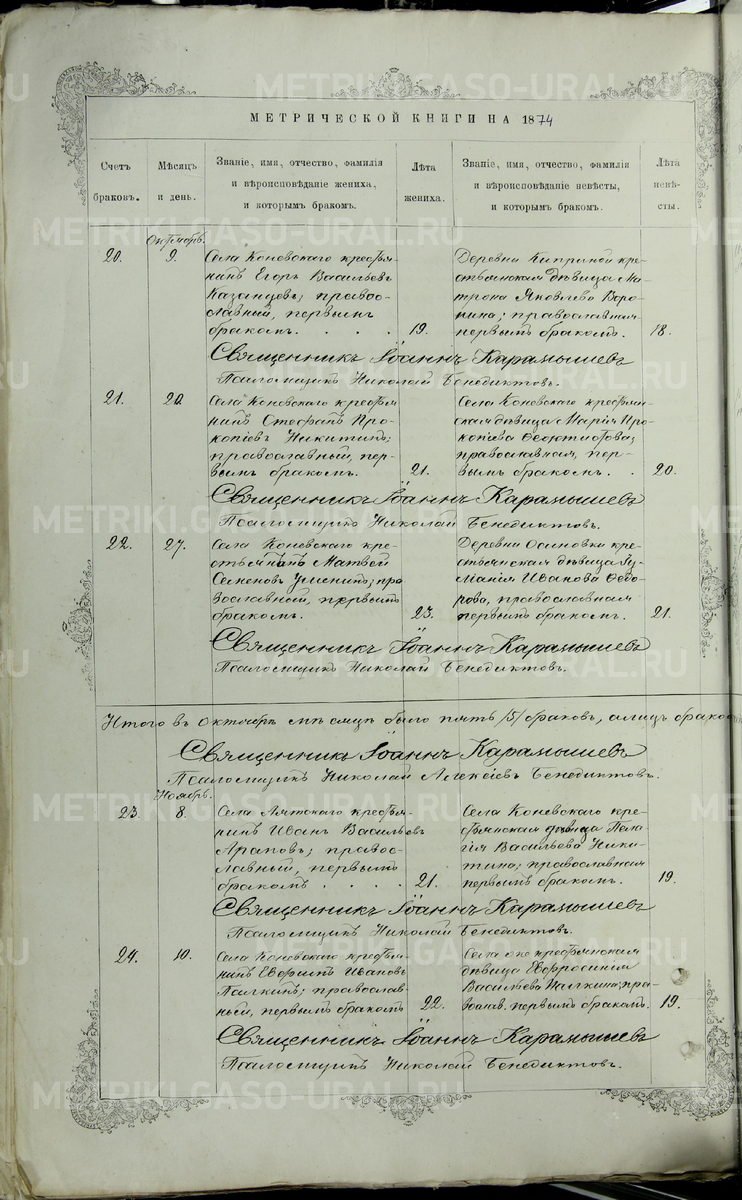 МЕТРИЧЕСКОЙ КНИГИ НА 1874
Счетъ браковъ.
Мѣсяцъ и день.
Званіе, имя, отчество, фамилія
и вѣроисповѣданіе жениха,
и которымъ бракомъ.
Лѣта жениха.
Званіе, имя, отчество, фамилія
и вѣроисповѣданіе невѣсты,
и которымъ бракомъ.
Лѣта невѣ-
сты.
Октябрь.
20.
9.
Села Коневскаго крестья-
нинъ Егоръ Васильевъ
Казанцевъ; правос-
лавный, первымъ
бракомъ.
19.
Деревни Киприной кре-
стьянская дѣвица Ма-
трона Яковлева Воро-
нина; православная
первымъ бракомъ.
18.
Священникъ Іоаннъ Карамышевъ
Псаломщикъ Николай Бенедиктовъ.
21.
20.
Села Коневскаго крестья-
нинъ Стефанъ Про-
копіевъ Никитинъ;
православный, пер-
вымъ бракомъ.
21.
Села Коневскаго крестьян-
ская дѣвица Марія Про-
копіева Феоктистова;
православная, пер-
вымъ бракомъ.
20.
Священникъ Іоаннъ Карамышевъ
Псаломщикъ Николай Бенедиктовъ.
22.
27.
Села Коневскаго кре-
стьянинъ Матвей
Семеновъ пра-
вославный, первымъ
бракомъ.
23.
Деревни Осиновки кре-
стьянская дѣвица Іу-
ліанія Иванова Федо-
рова, православная
первымъ бракомъ.
21.
Священникъ Іоаннъ Карамышевъ
Псаломщикъ Николай Бенедиктовъ.
Итого въ Октябрѣ мѣсяцѣ было пять /5/ браковъ, а лицъ
Священникъ Іоаннъ Карамышевъ
Псаломщикъ Николай Алексіевъ Бенедиктовъ.
Ноябрь.
23.
8.
Села Аятскаго крестья-
нинъ Иванъ Васильевъ
Араповъ; правос-
лавный, первымъ
бракомъ
21.
Села Коневскаго кре-
стьянская дѣвица Пела-
гія Васильева Ники-
тина; православная
первымъ бракомъ.
19.
Священникъ Іоаннъ Карамышевъ
Псаломщикъ Николай Бенедиктовъ.
24.
10.
Села Коневскаго крестья-
нинъ Евфимъ Ивановъ
Палкинъ; православ-
ный, первымъ бракомъ
22.
Села онаго крестьянская
дѣвица Евфросинія
Васильева Палкина; пра-
вослав. первымъ бракомъ.
19.
Священникъ Іоаннъ Карамышевъ
Псаломщикъ Николай Бенедиктовъ.
METRIKI.GASO-URAL.RU